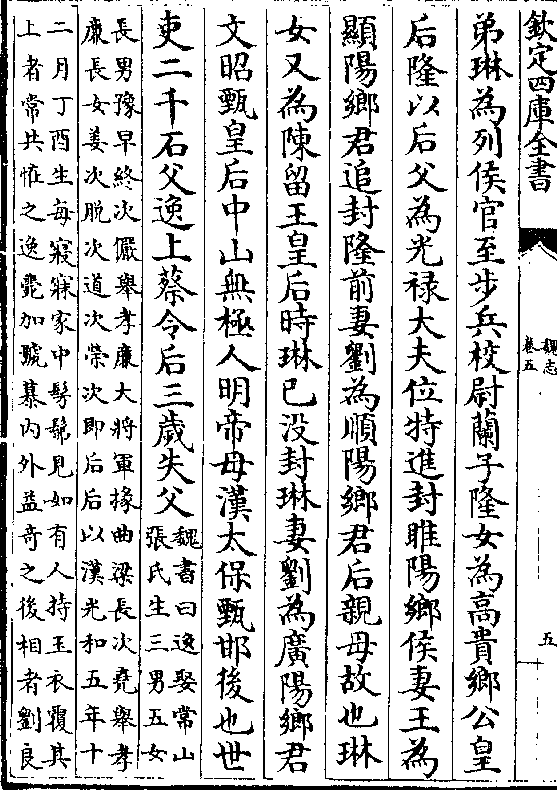 欽定四庫全書
魏志
卷五
五
弟琳為列侯官至步兵校尉蘭子隆女為高貴鄉公皇
后隆以后父為光祿大夫位特進封睢陽鄉侯妻王為
顯陽鄉君追封隆前妻劉為順陽鄉君后親母故也琳
女又為陳留王皇后時琳已没封琳妻劉為廣陽鄉君
文昭甄皇后中山無極人明帝母漢太保甄邯後也世
吏二千石父逸上蔡令后三歲失父
魏書曰逸娶常山
張氏生三男五女
長男豫早終次儼舉孝廉大將軍掾曲梁長次堯舉孝
廉長女姜次脱次道次榮次即后后以漢光和五年十
二月丁酉生每寢寐家中髣髴見如有人持玉衣覆其
上者常共怪之逸薨加號慕内外益奇之後相者劉良